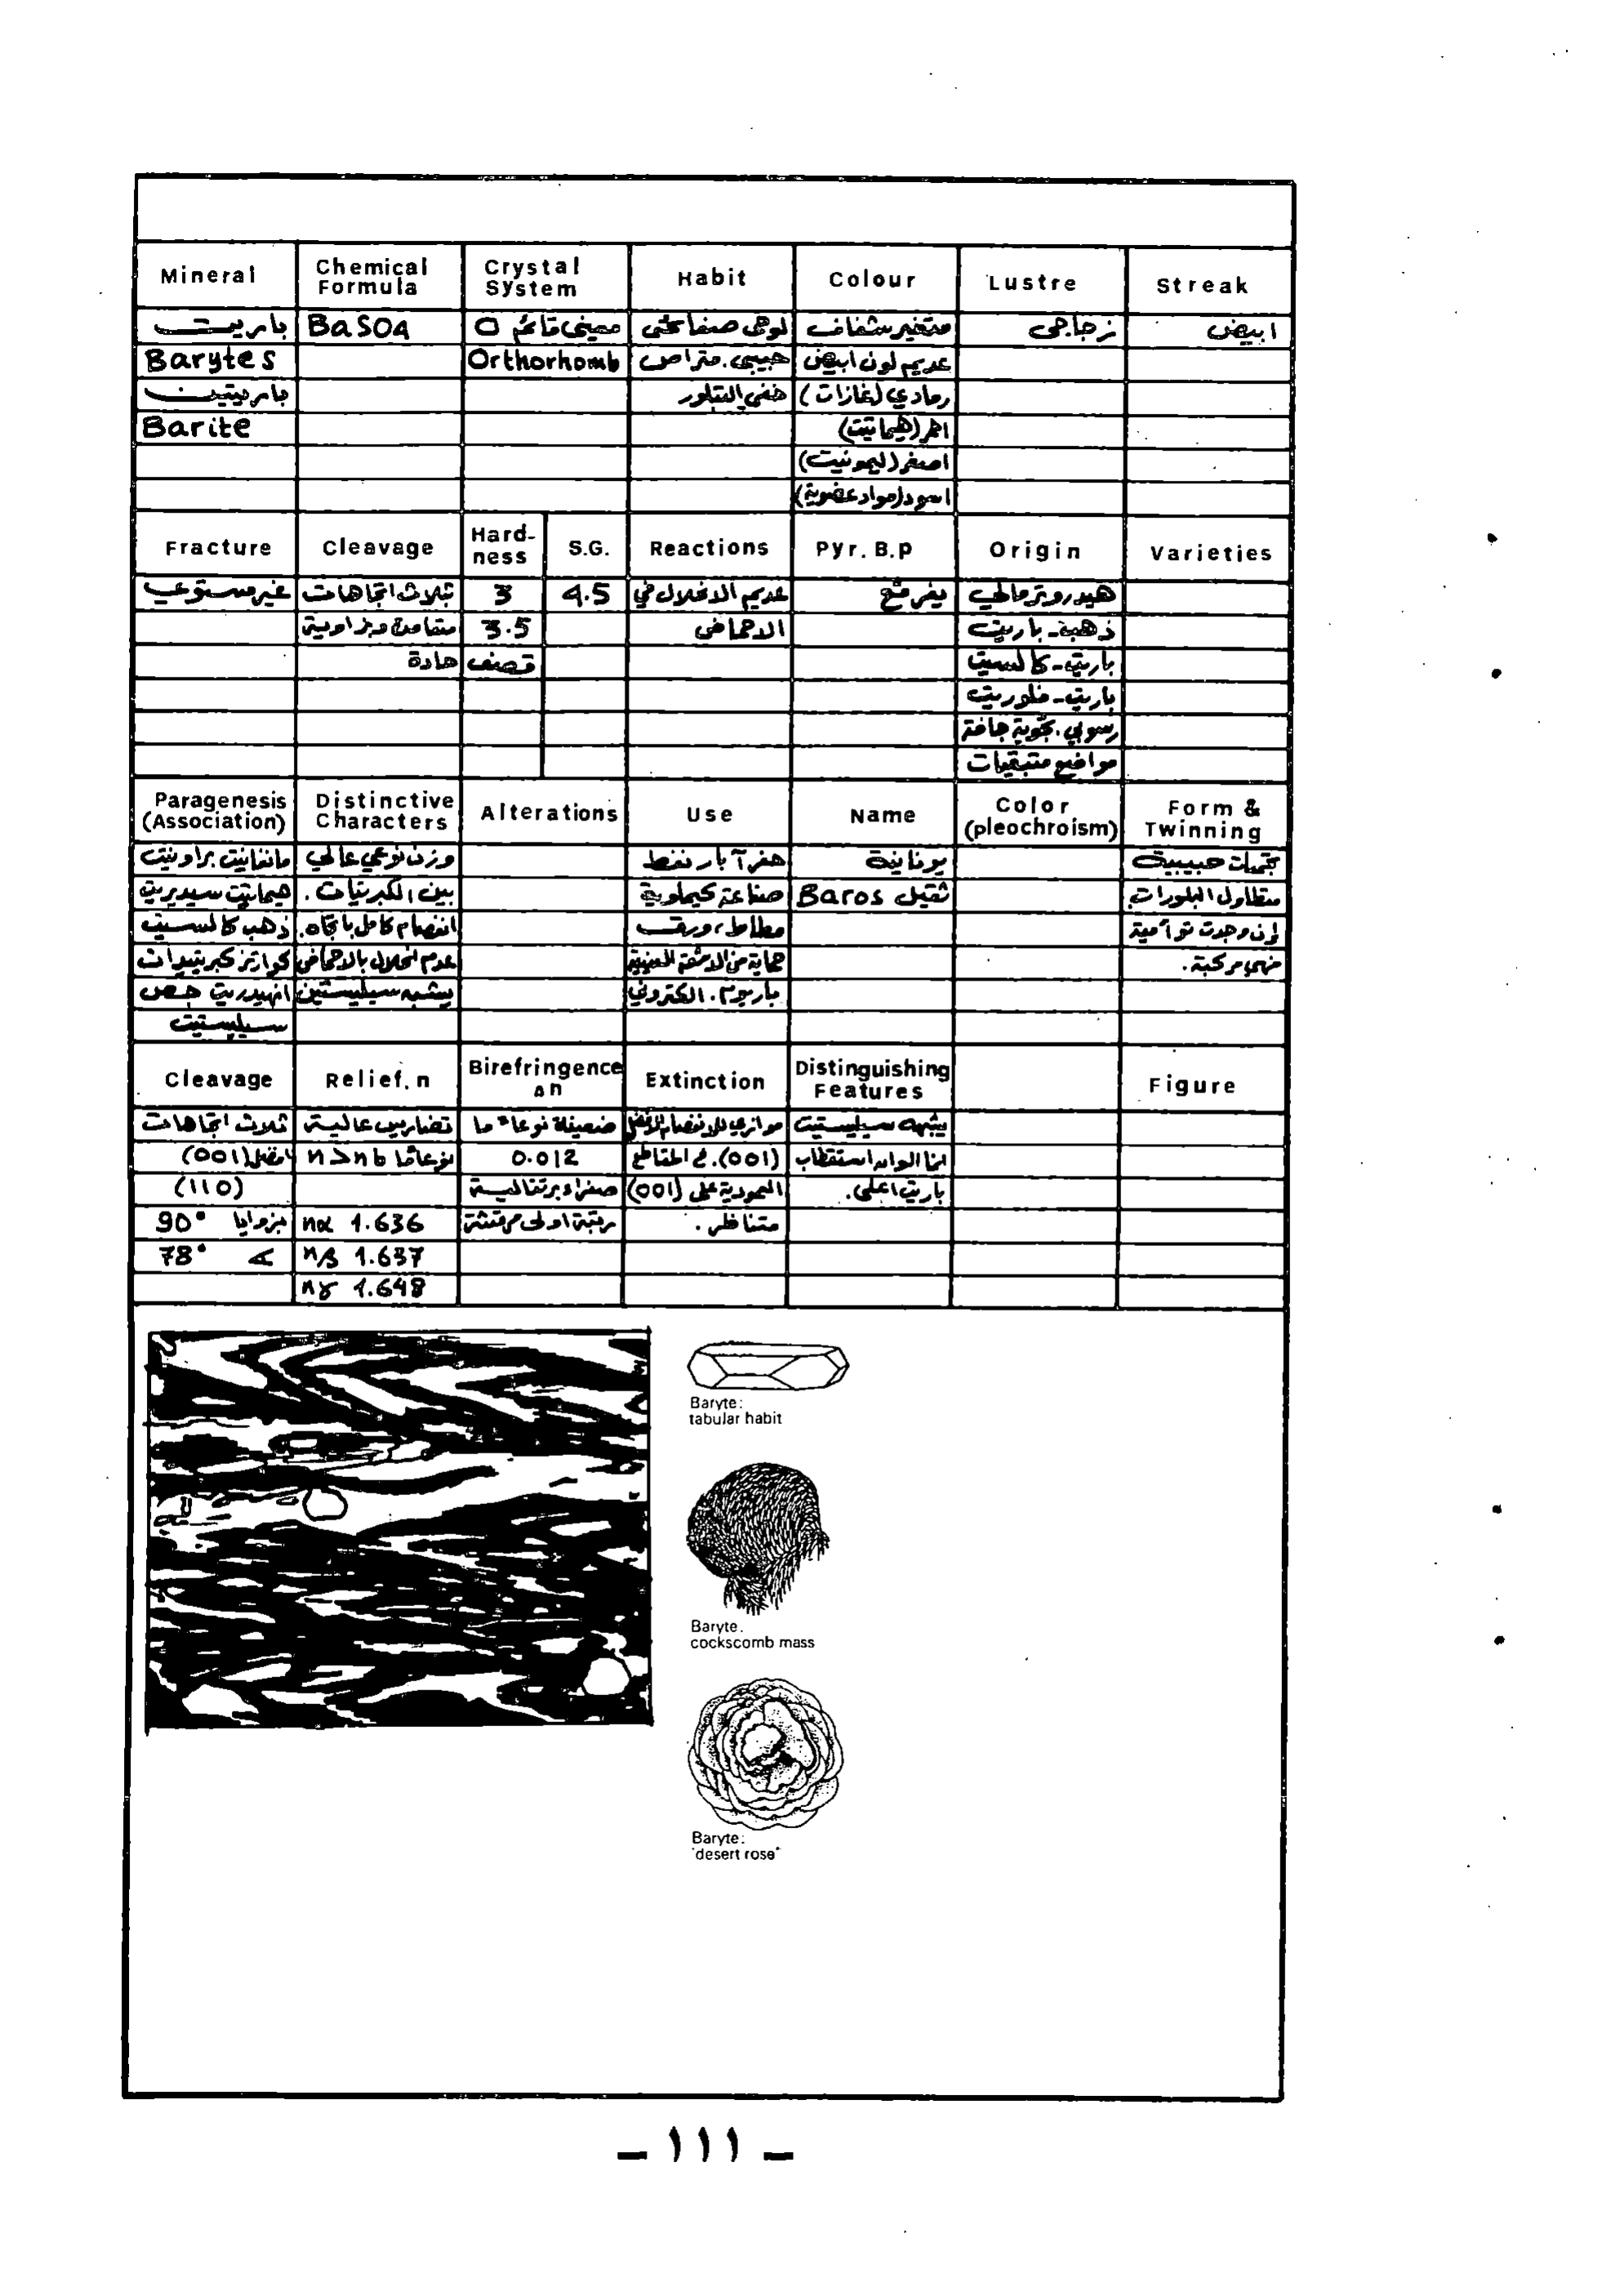 Mineral | Chemical Formula | Crystal System | Habit | Colour | Lustre | Streak
باريت | BaSO4 | معيني قائم O | لوحي صفائحي | متغير شفاف | زجاجي | ابيض
Barytes | Orthorhomb | حبيبي. متراص | عديم لون ابيض
باريتين | خفي التبلور | رمادي (غازات)
Barite | احمر (هيماتيت)
اصفر (ليمونيت)
اسود (مواد عضوية)
Fracture | Cleavage | Hard-ness | S.G. | Reactions | Pyr. B.p | Origin | Varieties
غير مستوي | ثلاث اتجاهات | 3 | 4.5 | عديم الانحلال في | يفرقع | هيدروترمالي
متعامدة وبزاوية | 3.5 | الاحماض | ذهبة - باريت
حادة | قصف | باريت - كالسيت
باريت - فلوريت
رسوبي. تجوية جافة
مواضع متبقيات
Paragenesis (Association) | Distinctive Characters | Alterations | Use | Name | Color (pleochroism) | Form & Twinning
مانغانيت براونيت | وزن نوعي عالي | حفر آبار نفط | يونانية | تجمعات حبيبية
هيماتيت سيديريت | بين الكبريتات. | صناعة كيماوية | Baros ثقيل | متطاول البلورات
ذهب كالسيت | انفصام كامل باتجاه. | مطاط، ورق | إن وجدت توأمية
كوارتز كبريتيدات | عدم انحلال بالاحماض | حماية من الاشعة السينية | فهي مركبة.
انهيدريت جص | يشبه سيليستين | باريوم. الكتروني
سيليستيت
Cleavage | Relief. n | Birefringence Δn | Extinction | Distinguishing Features | Figure
ثلاث اتجاهات | تضاريس عالية | ضعيفة نوعا ما | موازي للانفصام الافضل | يشبه سيليستيت
(001) | نوعا ما n > nb | 0.012 | (001). في المقاطع | انما الوان استقطاب
(110) | صفراء برتقالية | العمودية على (001) | باريت اعلى.
بزوايا 90° | nα 1.636 | رتبة اولى مرقشة | متناظر.
78° | nβ 1.637
nγ 1.648
Baryte:
tabular habit
Baryte.
cockscomb mass
Baryte:
'desert rose'
– ١١١ –